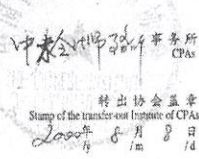 事务所
CPAs
转出协会盖章
Stamp of the transfer-out Institute of CPAs
2000年 8月 8日
/y /m /d